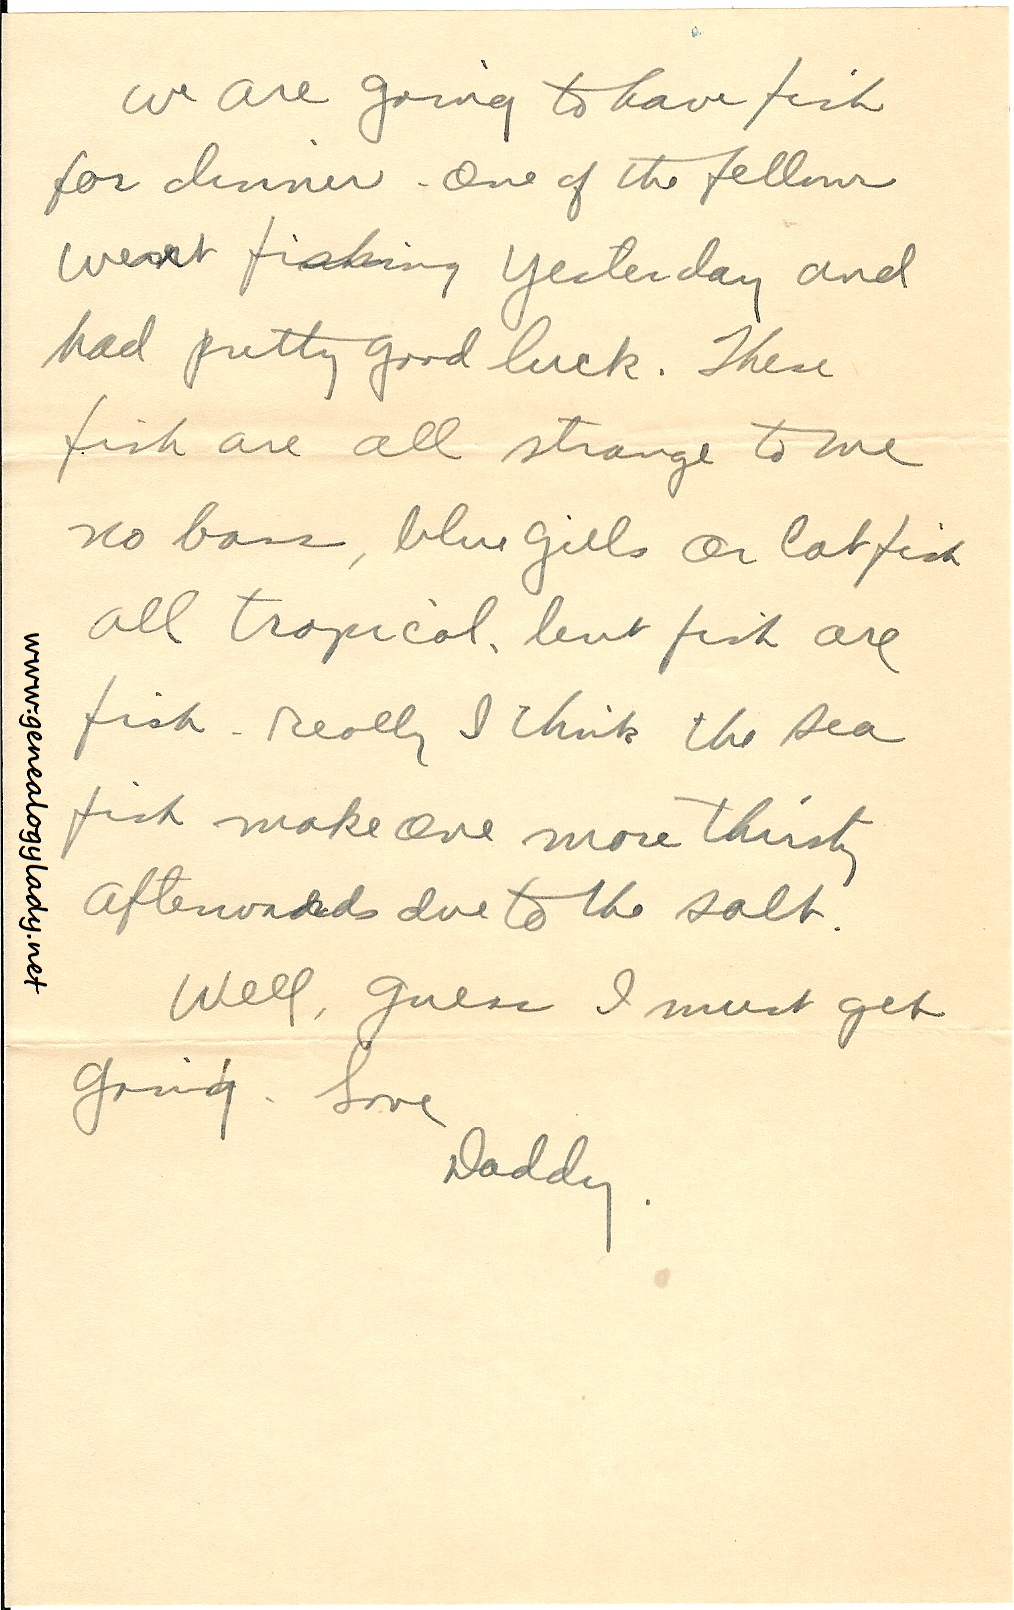 we are going to have fish
for dinner - One of the fellows
went fishing yesterday and
had pretty good luck. These
fish are all strange to me
no bass, blue gills or Catfish
all tropical, but fish are
fish - Really I think the sea
fish make one more thirsty
afterwards due to the salt.
Well, guess I must get
going. Love
Daddy.
www.genealogylady.net